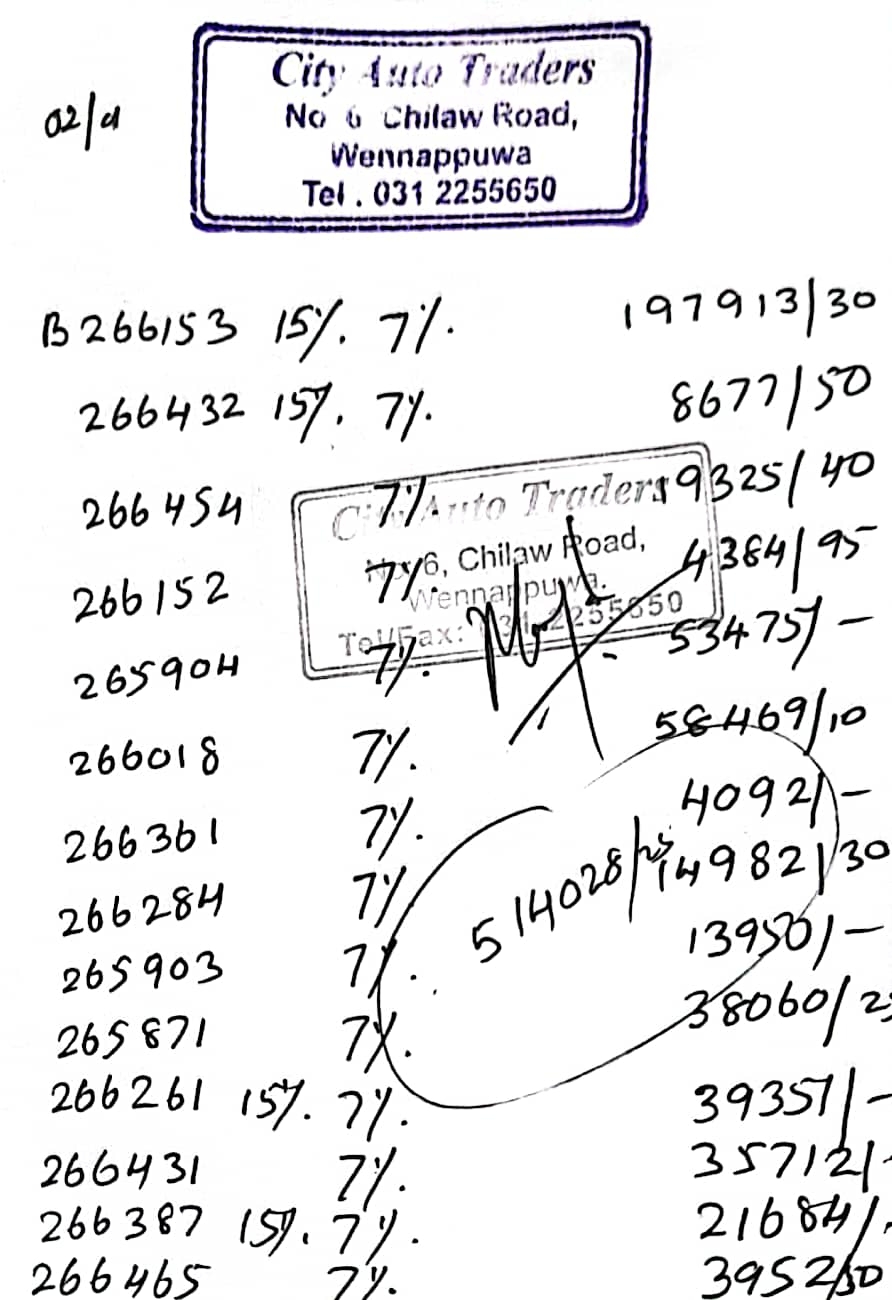 City Auto Traders
No 6 Chilaw Road,
Wennappuwa
Tel . 031 2255650
02/4
B 266153 15%. 7%. 197913/30
266432 15%. 7%. 8677/50
266454 7% 9325/40
266152 7% 4384/95
265904 7%. 53475/-
266018 7%. 58469/10
266361 7%. 4092/-
266284 7% 14982/30
265903 7%. 13950/-
265871 7%. 38060/2
266261 15%. 7%. 39357/-
266431 7%. 35712/-
266387 15%. 7%. 21684/-
266465 7%. 3952/50
City Auto Traders
No 6, Chilaw Road,
Wennappuwa.
Tel/Fax: 031 2255650
514028/25